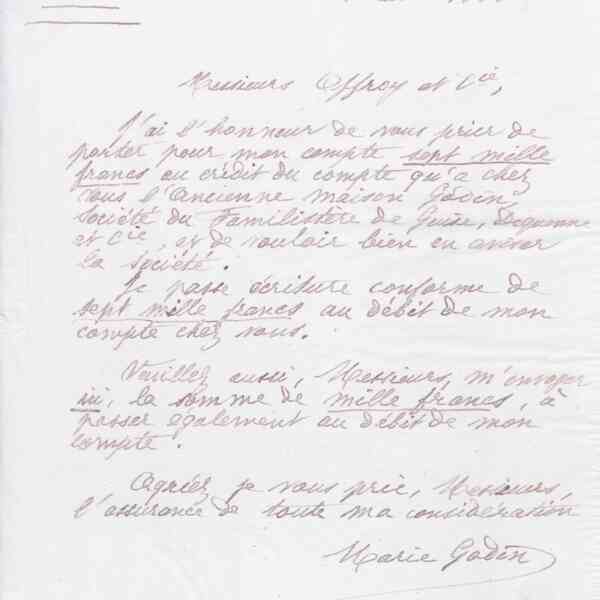 Messieurs Offroy et Cie,
J'ai l'honneur de vous prier de
porter pour mon compte sept mille
francs au crédit du compte qu'a chez
vous l'Ancienne maison Godin,
Société du Familistère de Guise, Dequenne
et Cie, et de vouloir bien en aviser
la société.
Je passe écriture conforme de
sept mille francs au débit de mon
compte chez vous.
Veuillez aussi, Messieurs, m'envoyer
ici, la somme de mille francs, à
passer également au débit de mon
compte.
Agréez, je vous prie, Messieurs,
l'assurance de toute ma considération
Marie Godin